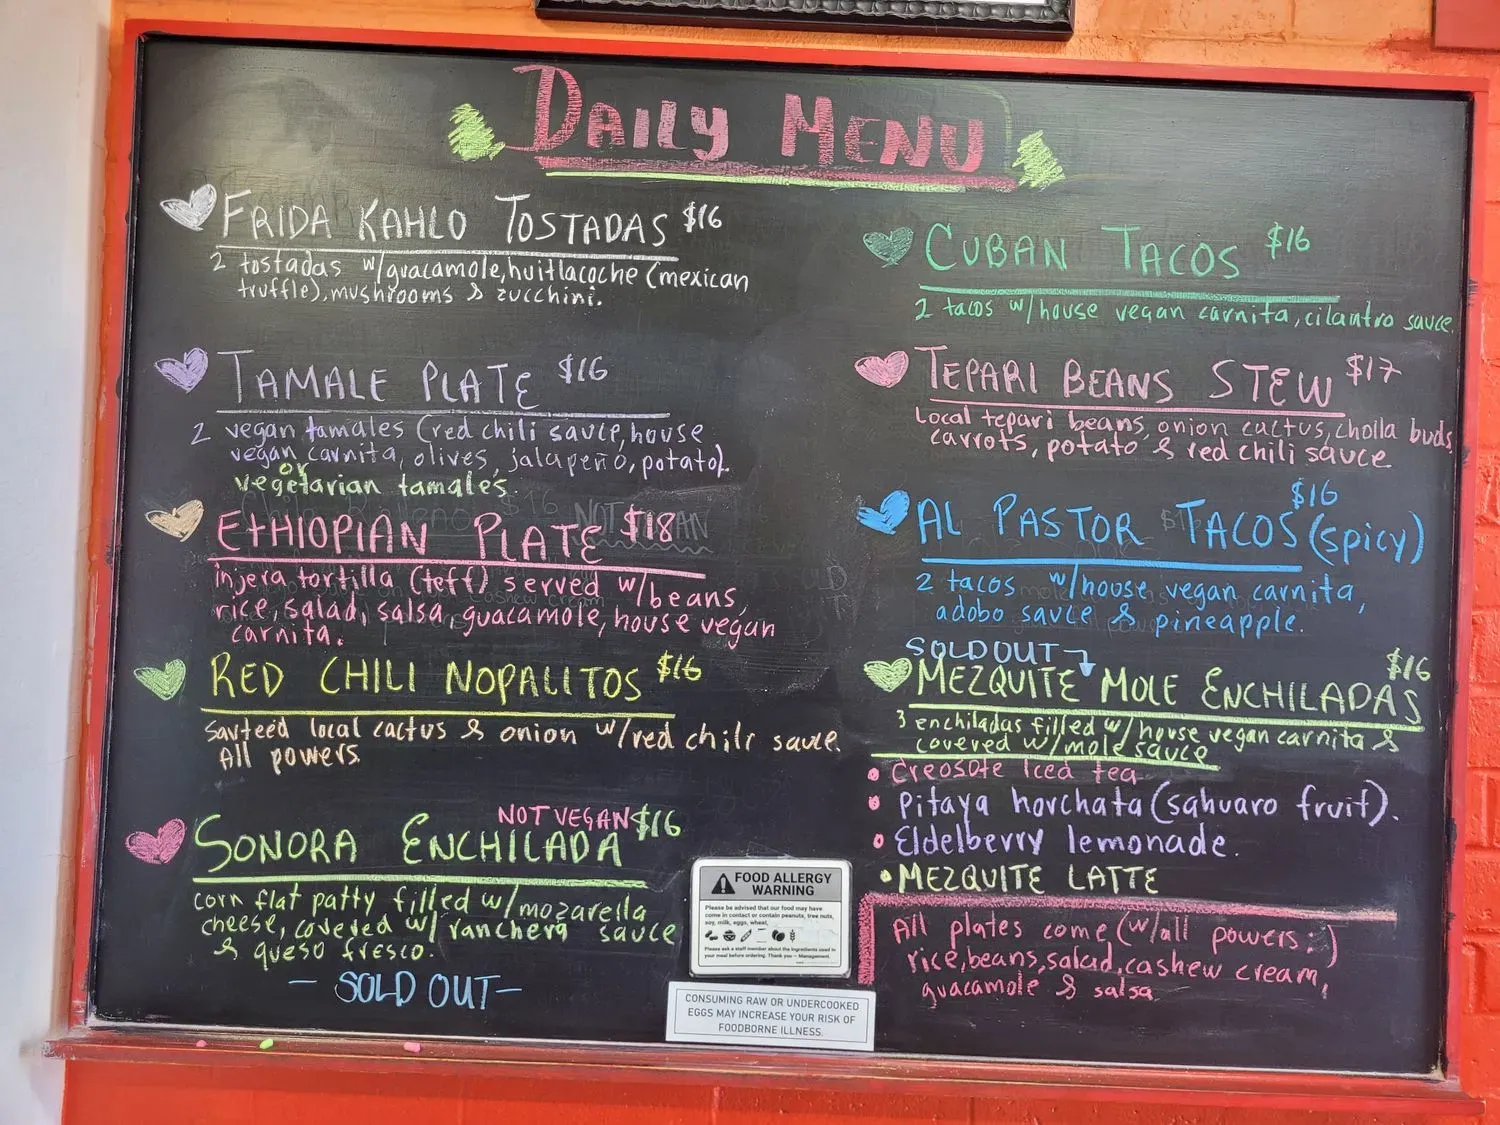 DAILY MENU
FRIDA KAHLO TOSTADAS $16
2 tostadas w/guacamole, huitlacoche (mexican
truffle), mushrooms & zucchini.
TAMALE PLATE $16
2 vegan tamales (red chili sauce, house
vegan carnita, olives, jalapeño, potato).
or
vegetarian tamales.
NOT VEGAN
ETHIOPIAN PLATE $18
injera tortilla (teff) served w/beans,
rice, salad, salsa, guacamole, house vegan
carnita.
RED CHILI NOPALITOS $16
Sauteed local cactus & onion w/red chili sauce.
All powers
NOT VEGAN
SONORA ENCHILADA $16
corn flat patty filled w/mozarella
cheese, covered w/ ranchera sauce
& queso fresco.
- SOLD OUT -
CUBAN TACOS $16
2 tacos w/house vegan carnita, cilantro sauce.
TEPARI BEANS STEW $17
Local tepari beans, onion cactus, cholla buds,
carrots, potato & red chili sauce
AL PASTOR TACOS $16 (spicy)
2 tacos w/house vegan carnita,
adobo sauce & pineapple.
SOLD OUT
MEZQUITE MOLE ENCHILADAS $16
3 enchiladas filled w/house vegan carnita &
covered w/mole sauce
• Creosote Iced tea
• Pitaya horchata (sahuaro fruit).
• Eldelberry lemonade.
• MEZQUITE LATTE
All plates come (w/all powers:)
rice, beans, salad, cashew cream,
guacamole & salsa
FOOD ALLERGY
WARNING
Please be advised that our food may have
come in contact or contain peanuts, tree nuts,
soy, milk, eggs, wheat,
Please ask a staff member about the ingredients used in
your meal before ordering. Thank you - Management.
CONSUMING RAW OR UNDERCOOKED
EGGS MAY INCREASE YOUR RISK OF
FOODBORNE ILLNESS.